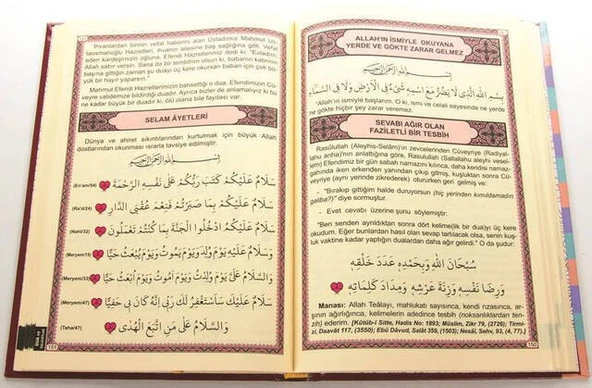 İhvanlardan birinin vefat haberini alan Üstadımız Mahmut Us-
taosmanoğlu Hazretleri, ihvanın ailesine baş sağlığına gitti. Vefat
eden kardeşimizin oğluna, Efendi Hazretlerimiz dedi ki: "Evladım,
Allah sabır versin. Sana da bir tembihim olsun ki, babanın kabrinin
başına gittiğin zaman şu duayı üç kere okursan babları için çok bü-
yük bir hayır yaparsın."
Mahmut Efendi Hazretlerimizin bahsettiği o dua, Efendimizin Cü-
veyre validemize bildirdiği duadır. Ayrıca bizler de anlamalıyız ki bu
ne kadar büyük bir duadır ki, ölü olana bile faydası var.
SELAM ÂYETLERİ
Dünya ve ahiret sıkıntılarından kurtulmak için büyük Allah
dostlarından okunması ısrarla tavsiye edilmiştir.
سَلَامٌ عَلَيْكُمْ كَتَبَ رَبُّكُمْ عَلَى نَفْسِهِ الرَّحْمَةَ (En'am/54)
سَلَامٌ عَلَيْكُمْ بِمَا صَبَرْتُمْ فَنِعْمَ عُقْبَى الدَّارِ (Ra'd/24)
سَلَامٌ عَلَيْكُمُ ادْخُلُوا الْجَنَّةَ بِمَا كُنْتُمْ تَعْمَلُونَ (Nahl/32)
وَسَلَامٌ عَلَيْهِ يَوْمَ وُلِدَ وَيَوْمَ يَمُوتُ وَيَوْمَ يُبْعَثُ حَيًّا (Meryem/15)
وَالسَّلَامُ عَلَيَّ يَوْمَ وُلِدْتُ وَيَوْمَ أَمُوتُ وَيَوْمَ أُبْعَثُ حَيًّا (Meryem/33)
سَلَامٌ عَلَيْكَ سَأَسْتَغْفِرُ لَكَ رَبِّي إِنَّهُ كَانَ بِي حَفِيًّا (Meryem/47)
وَالسَّلَامُ عَلَى مَنِ اتَّبَعَ الْهُدَى (Taha/47)
151
ALLAH'IN İSMİYLE OKUYANA
YERDE VE GÖKTE ZARAR GELMEZ
بِسْمِ اللَّهِ الَّذِي لَا يَضُرُّ مَعَ اسْمِهِ شَيْءٌ فِي الْأَرْضِ وَلَا فِي السَّمَاءِ
"Allah'ın ismiyle başlarım. O ki, ismi ve celali sayesinde ne yerde
ne gökte hiçbir şey zarar veremez.
SEVABI AĞIR OLAN
FAZİLETLİ BİR TESBİH
Rasûlullah (Aleyhis-Selâm)'in zevcelerinden Cüveyriye (Radiyal-
lahu anha)'nın anlattığına göre, Rasulullah (Sallallahu aleyhi vesel-
lem) Efendimiz bir gün sabah namazını kılınca, daha kendisi namaz-
gahında iken erkenden yanından çıkıp gitmiş, kuşluktan sonra Cü-
veyriye (aynı yerinde zikrederek) otururken geri gelmiş ve:
- "Bırakıp gittiğim halde duruyorsun (hiç yerinden kımıldamadın
galiba?)" diye sormuştur.
- Evet cevabı üzerine şunu söylemiştir:
"Ben senden ayrıldıktan sonra dört kelimelik bir duayı üç kere
okudum. Eğer bunlardan hasıl olan sevap tartılacak olsa, senin kuş-
luk vaktine kadar yaptığın dualardan daha ağır gelirdi." O da şudur:
سُبْحَانَ اللَّهِ وَبِحَمْدِهِ عَدَدَ خَلْقِهِ
وَرِضَا نَفْسِهِ وَزِنَةَ عَرْشِهِ وَمِدَادَ كَلِمَاتِهِ
Manası: Allah Teâlayı, mahlukatı sayısınca, kendi rızasınca, ar-
şının ağırlığınca, kelimelerin adedince tesbih (noksanlıklardan ten-
zih) ederim. [Kütüb-i Sitte, Hadis No: 1893; Müslim, Zikr 79, (2726); Tirmi-
zî, Daavât 117, (3550); Ebû Dâvud, Salât 359, (1503); Nesâî, Sehv, 93, (4, 77).]
150